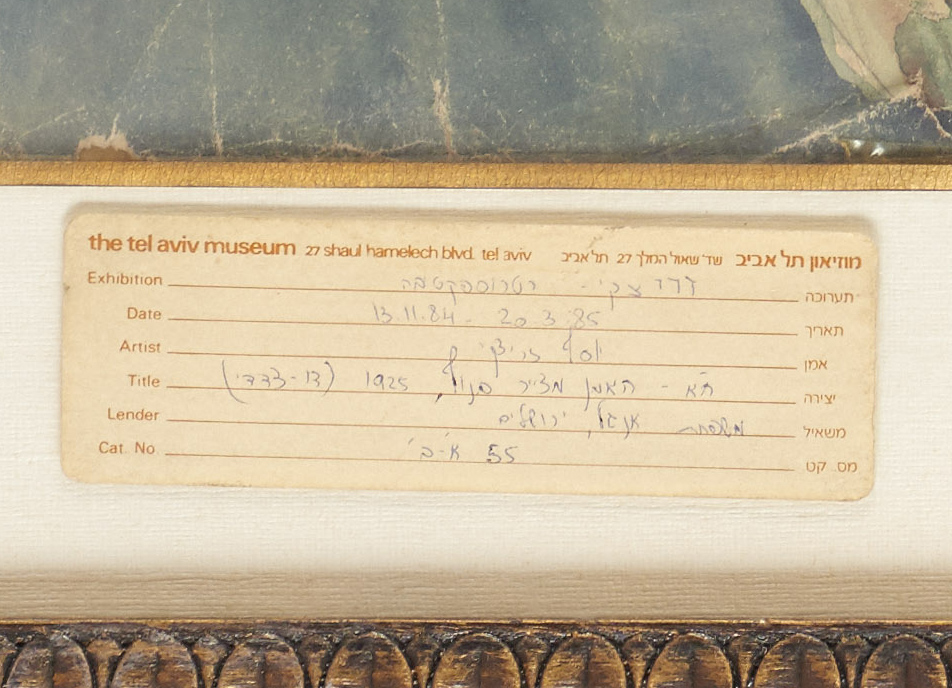 the tel aviv museum 27 shaul hamelech blvd. tel aviv מוזיאון תל אביב שד׳ שאול המלך 27 תל אביב
Exhibition רטרוספקטיבה תערוכה
Date 13.11.84 - 20.3.85 תאריך
Artist יוסף זריצקי אמן
Title ת״א - האמן מצייר מנוף, 1925 (דו-צדדי) יצירה
Lender משפחת אנגל, ירושלים משאיל
Cat. No. 55 א׳-ב׳ מס. קט